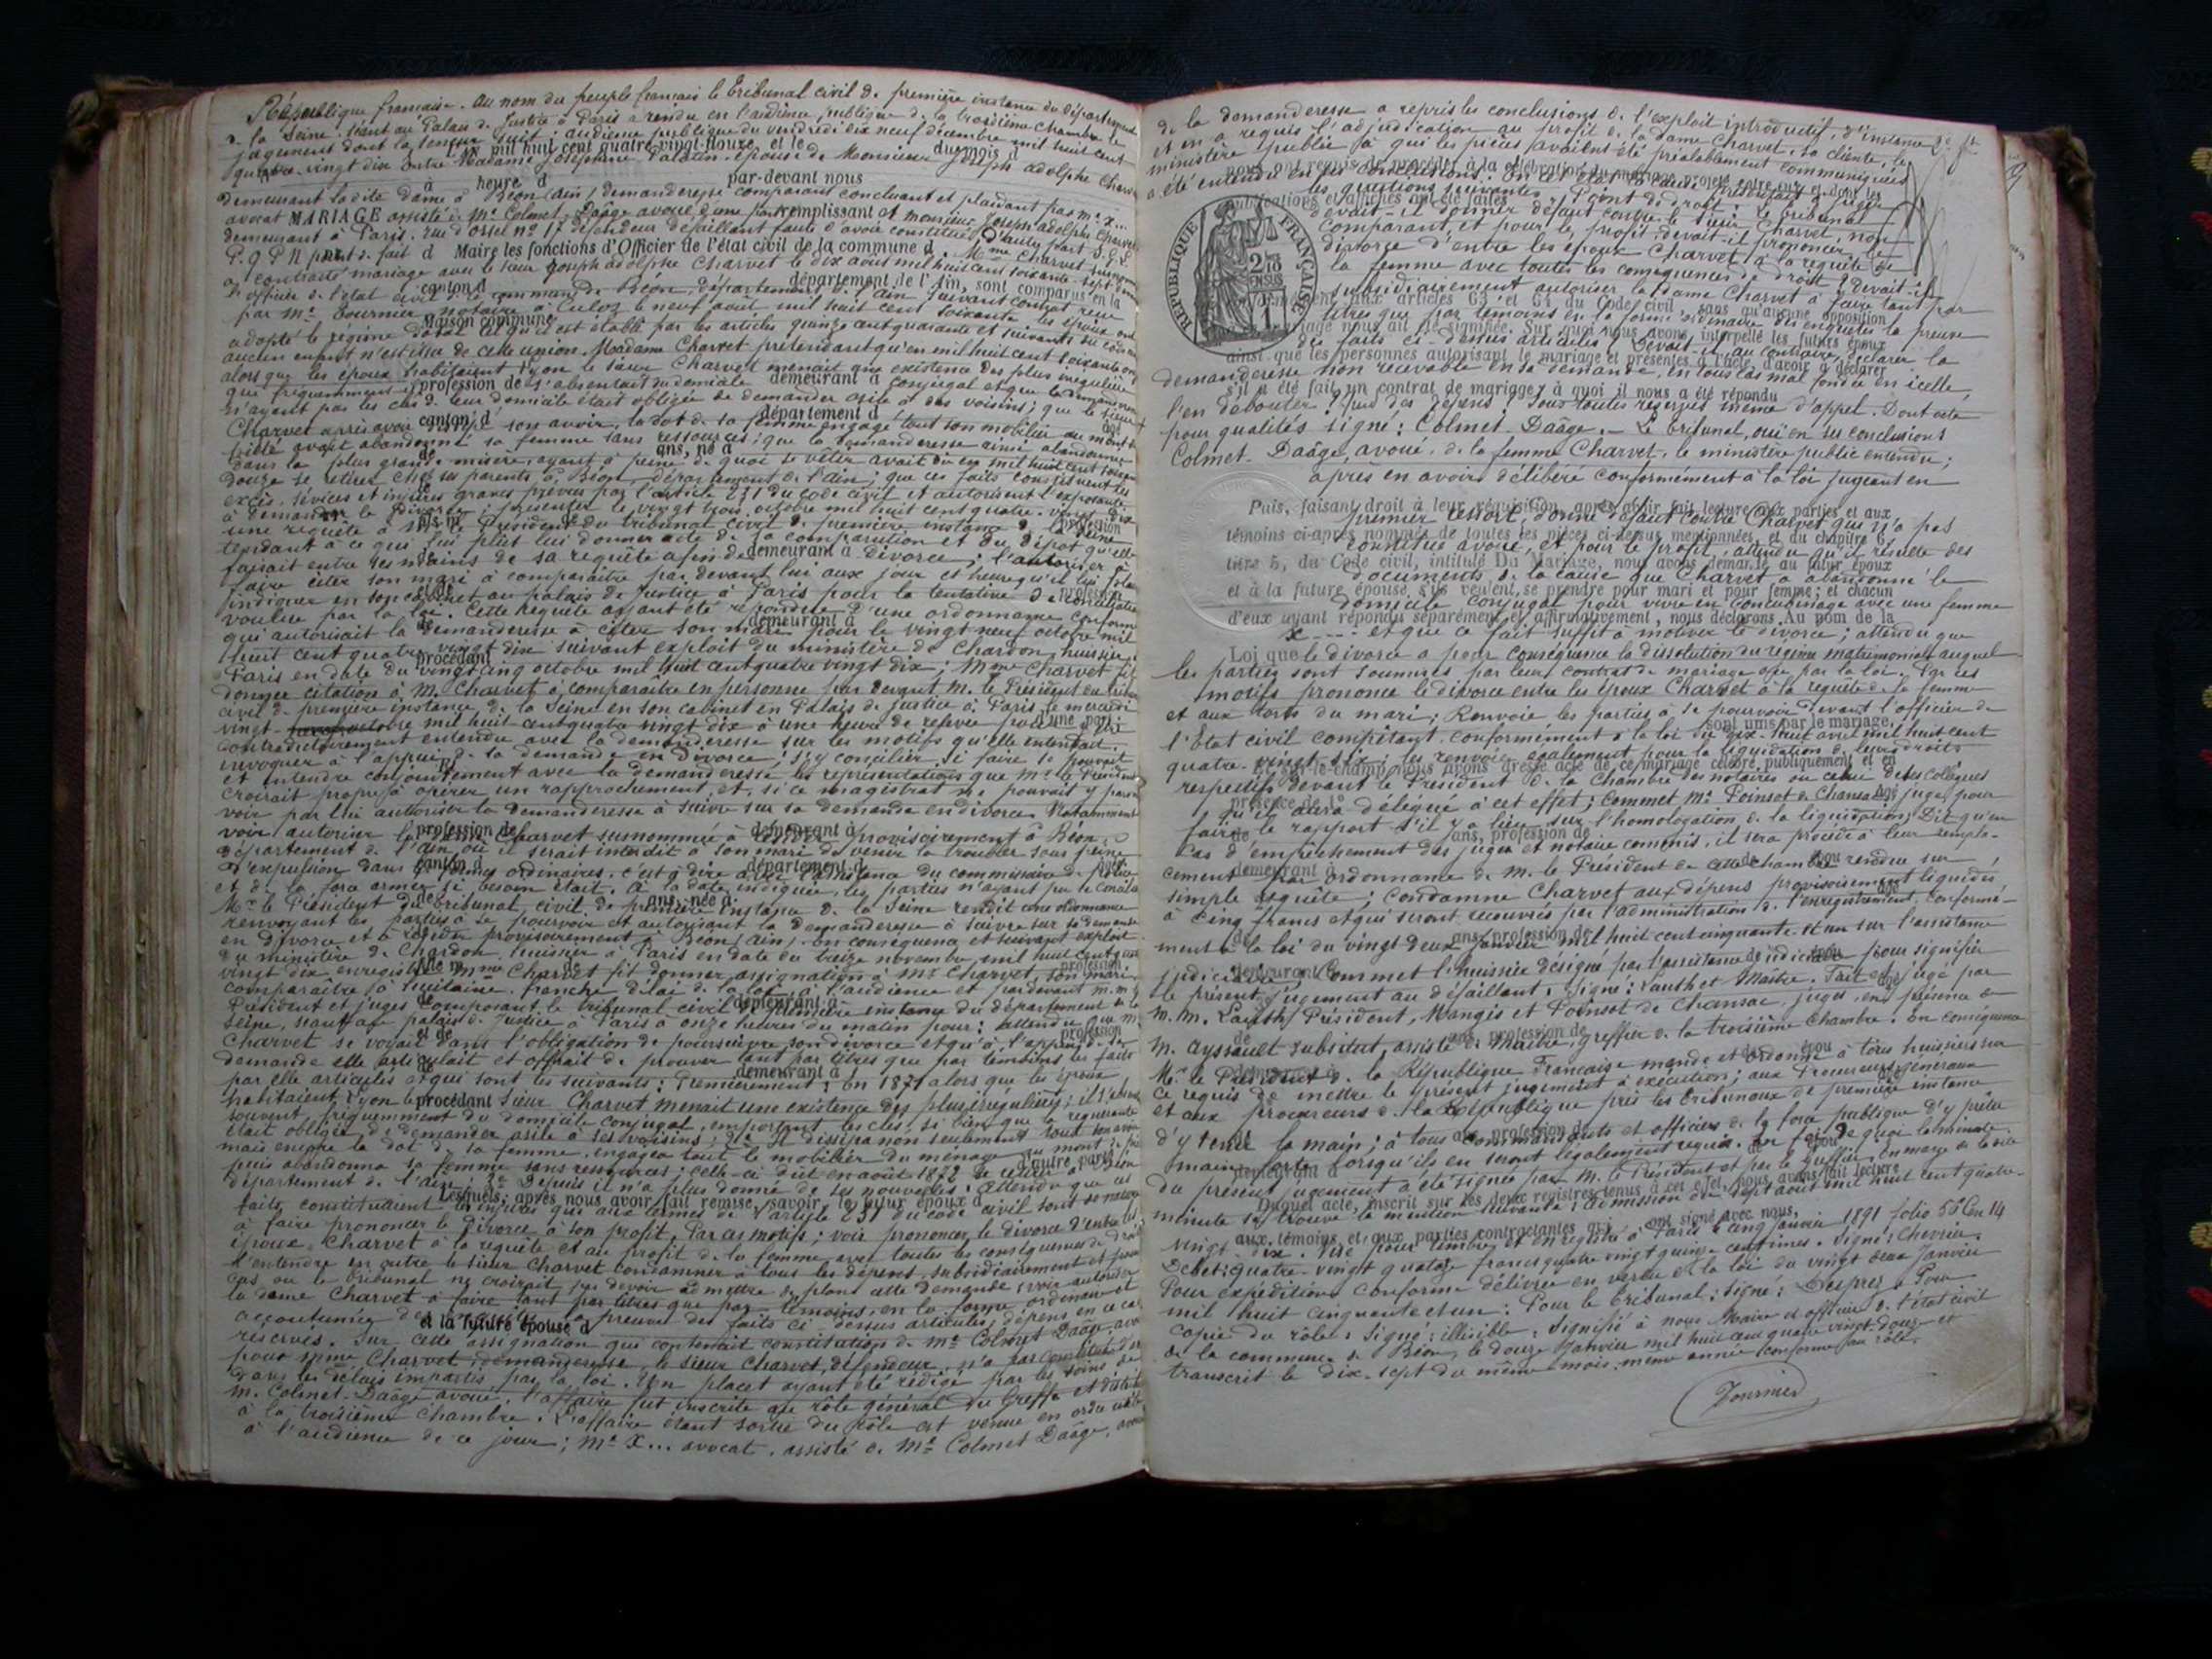 République française. Au nom du peuple français le tribunal civil de première instance du département
de la Seine, séant au Palais de Justice à Paris a rendu en l'audience publique de la troisième chambre le
jugement dont la teneur suit : audience publique du vendredi dix neuf décembre mil huit cent
L'an mil huit cent quatre-vingt-douze, et le du mois d
quatre-vingt dix Entre Madame Joséphine épouse de Monsieur Joseph Adolphe Charvet
à heure d par-devant nous
demeurant la dite dame à Béon (Ain) demanderesse comparant concluant et plaidant par Me X...
avocat MARIAGE assisté de Me Colmet-Daâge avoué d'une part remplissant et monsieur Joseph Adolphe Charvet
demeurant à Paris, rue d'Orsel no 17 défendeur défaillant faute d'avoir constitué avoué d'autre part
Maire les fonctions d'Officier de l'état civil de la commune d
point de fait Mme Charvet susnommée
a contracté mariage avec le sieur Joseph Adolphe Charvet le dix août mil huit cent soixante sept devant
canton d département de l'Ain, sont comparus en la
l'officier de l'état civil de la commune de Béon, département de l'Ain suivant contrat reçu
par Me Tournier notaire à Culoz le neuf août mil huit cent soixante les époux ont
Maison commune
adopté le régime dotal tel qu'il est établi par les articles quinze cent quarante et suivants du code
aucun enfant n'est issu de cette union. Madame Charvet prétendant qu'en mil huit cent soixante onze
alors que les époux habitaient Lyon le sieur Charvet menait une existence des plus irrégulière
profession de demeurant à
que fréquemment il s'absentait du domicile conjugal et que la demanderesse
n'ayant pas les clés de leur domicile était obligée de demander asile à des voisins ; que le sieur
canton d département d
Charvet après avoir son avoir, la dot de sa femme engagé tout son mobilier au mont de
piété avait abandonné sa femme sans ressources ; que la demanderesse ainsi abandonnée
de ans, né à
dans la plus grande misère, ayant à peine de quoi se vêtir avait dû en mil huit cent soixante
douze se retirer chez ses parents à Béon, département de l'Ain ; que ces faits constituent les
excès, sévices et injures graves prévus par l'article 231 du code civil et autorisent l'exposante
à demander le divorce ; présenter le vingt trois octobre mil huit cent quatre-vingt dix
une requête à Mr le Président du tribunal civil de première instance de la Seine
tendant à ce qu'il lui plût lui donner acte de sa comparution et du dépôt qu'elle
faisait entre ses mains de sa requête afin de divorce ; l'autoriser à
demeurant à
faire citer son mari à comparaître par devant lui aux jour et heure qu'il lui plaira
indiquer en son cabinet au palais de Justice à Paris pour la tentative de conciliation
voulue par la loi. Cette requête ayant été répondue d'une ordonnance conforme
demeurant à
qui autorisait la demanderesse à citer son mari pour le vingt neuf octobre mil
huit cent quatre vingt dix suivant exploit du ministère de Chardon, huissier à
procédant
Paris en date du vingt cinq octobre mil huit cent quatre vingt dix ; Mme Charvet fit
donner citation à M. Charvet à comparaître en personne par devant M. le Président du tribunal
civil de première instance de la Seine en son cabinet en Palais de Justice à Paris, le mercredi
vingt-neuf octobre mil huit cent quatre vingt dix à une heure de relevée pour
d'une part
contradictoirement entendu avec la demanderesse sur les motifs qu'elle entendait
invoquer à l'appui de sa demande en divorce, s'y concilier si faire se pouvait
et entendre conjointement avec la demanderesse les représentations que Mr le Président
croirait propres à opérer un rapprochement et, si ce magistrat ne pouvait y parvenir
voir par lui autoriser la demanderesse à suivre sur sa demande en divorce. Notamment
profession de demeurant à
voir autoriser la dame Charvet susnommée à résider provisoirement à Béon,
département de l'Ain où il serait interdit à son mari de venir la troubler sous peine
canton d département d
d'expulsion dans les formes ordinaires, c'est à dire avec l'assistance du commissaire de police
et de la force armée si besoin était. A la date indiquée, les parties n'ayant pu se concilier
de ans, née à
Mr le Président du tribunal civil de première instance de la Seine rendit une ordonnance
renvoyant les parties à se pourvoir et autorisant la demanderesse à suivre sur sa demande
en divorce et à résider provisoirement à Béon (Ain). En conséquence et suivant exploit
du ministère de Chardon, huissier à Paris en date du treize novembre mil huit cent quatre
fille m de profession
vingt dix, enregistré, Mme Charvet fit donner assignation à Mr Charvet, son mari à
comparaître à huitaine franche délai de la loi, à l'audience et pardevant M.M.
de demeurant à
Président et juges composant le tribunal civil de première instance du département de la
Seine, séant au palais de Justice à Paris à onze heures du matin pour : attendu que Mme
et de profession
Charvet se voyait dans l'obligation de poursuivre son divorce et qu'à l'appui de sa
demande elle articulait et offrait de prouver tant par titres que par témoins les faits
demeurant à
par elle articulés et qui sont les suivants : Premièrement : En 1871 alors que les époux
procédant
habitaient Lyon le sieur Charvet menait une existence des plus irrégulières ; il s'absentait
souvent, fréquemment du domicile conjugal, emportant les clés, si bien que la requérante
était obligée de demander asile à ses voisins ; 2° Il dissipa non seulement tout son avoir
mais encore la dot de sa femme, engagea tout le mobilier du ménage au mont de piété
puis abandonna sa femme sans ressources ; celle-ci dut en août 1872 se retirer à Béon
d'autre part ;
département de l'Ain ; 3° Depuis il n'a plus donné de ses nouvelles ; Attendu que ces
Lesquels, après nous avoir fait remise, savoir, le futur époux d
faits constituaient les injures que aux termes de l'article 231 du code civil sont de nature
à faire prononcer le divorce à son profit. Par ces motifs : voir prononcer le divorce d'entre les
époux Charvet à la requête et au profit de la femme avec toutes les conséquences de droit
s'entendre en outre le sieur Charvet condamner à tous les dépens, subsidiairement et pour
cas où le tribunal ne croirait pas devoir admettre de plano cette demande ; voir autoriser
la dame Charvet à faire tant par titres que par témoins, en la forme ordinaire et
accoutumée des enquêtes la preuve des faits ci-dessus articulés, dépens en ce cas
et la future épouse d
réservés. Sur cette assignation qui contenait constitution de Me Colmet Daâge, avoué
pour Mme Charvet, demanderesse, le sieur Charvet, défendeur, n'a pas constitué
dans les délais impartis par la loi. Un placet ayant été rédigé par les soins de
M. Colmet-Daâge avoué, l'affaire fut inscrite au rôle général du Greffe et distribuée
à la troisième chambre. L'affaire étant sortie du rôle est venue en ordre utile
à l'audience de ce jour ; Me X... avocat, assisté de Me Colmet Daâge, avoué
de la demanderesse a repris les conclusions de l'exploit introductif d'instance
et en a requis l'adjudication au profit de la dame Charvet, sa cliente, le
ministère public à qui les pièces avaient été préalablement communiquées
nous ont requis de procéder à la célébration du mariage projeté entre eux et dont les
a été entendu en ses conclusions. En cet état la cause présentait à juger
publications et affiches ont été faites
les questions suivantes : Point de droit : Le tribunal
devait-il donner défaut contre le sieur Charvet, non
comparant, et pour le profit, devait-il prononcer le
divorce d'entre les époux Charvet à la requête de
la femme avec toutes les conséquences de droit ? Devait-il
REPUBLIQUE FRANÇAISE
subsidiairement autoriser la dame Charvet à faire tant par
aux articles 63 et 64 du Code civil, sans qu'aucune opposition
titres que par témoins en la forme ordinaire des enquêtes la preuve
nous ait été signifiée. Sur quoi nous avons interpellé les futurs époux
des faits ci-dessus articulés ? Devait-il au contraire, déclarer la
ainsi que les personnes autorisant le mariage et présentes à l'acte, d'avoir à déclarer
demanderesse non recevable en sa demande, en tous cas mal fondée en icelle,
s'il a été fait un contrat de mariage, à quoi il nous a été répondu
l'en débouter ? Quid des dépens ? Sous toutes réserves même d'appel. Dont acte
pour qualités signé : Colmet-Daâge. – Le tribunal, ouï en ses conclusions
Colmet-Daâge, avoué, de la femme Charvet, le ministère public entendu ;
après en avoir délibéré conformément à la loi jugeant en
Puis, faisant droit à leur réquisition, après avoir fait lecture aux parties et aux
premier ressort, donne défaut contre Charvet qui n'a pas
témoins ci-après nommés de toutes les pièces ci-dessus mentionnées, et du chapitre 6,
constitué avoué, et pour le profit, attendu qu'il résulte des
titre 5, du Code civil, intitulé Du Mariage, nous avons demandé au futur époux
documents de la cause que Charvet a abandonné le
et à la future épouse, s'ils veulent se prendre pour mari et pour femme ; et chacun
domicile conjugal pour vivre en concubinage avec une femme
d'eux ayant répondu séparément et affirmativement, nous déclarons, Au nom de la
X.... et que ce fait suffit à motiver le divorce ; attendu que
Loi que le divorce a pour conséquence la dissolution du régime matrimonial auquel
les parties sont soumises par leur contrat de mariage ou par la loi. Par ces
motifs prononce le divorce entre les époux Charvet à la requête de la femme
et aux torts du mari ; Renvoie les parties à se pourvoir devant l'officier de
sont unis par le mariage,
l'Etat civil compétant, conformément à la loi du dix-huit avril mil huit cent
quatre-vingt-six ; les renvoie également pour la liquidation de leurs droits
Et sur-le-champ nous avons dressé acte de ce mariage célébré publiquement et en
respectifs devant le Président de la Chambre des notaires ou celui de ses collègues
présence de 1° âgé
qu'il aura délégué à cet effet ; commet Mr Poinsot de Chansac, juge, pour
faire le rapport s'il y a lieu sur l'homologation de la liquidation ; Dit qu'en
de ans, profession de
cas d'empêchement des juges et notaire commis, il sera procédé à leur rempla-
demeurant à
cement par ordonnance de M. le Président de cette chambre rendue sur
simple requête ; condamne Charvet aux dépens provisoirement liquidés
à cinq francs et qui seront recouvrés par l'administration de l'enregistrement, conformé-
de ans, profession de
ment à la loi du vingt deux janvier mil huit cent cinquante et un sur l'assistance
demeurant à
judiciaire, Commet l'huissier désigné par l'assistance judiciaire pour signifier
le présent jugement au défaillant. Signé : Lauth et Maître. Fait et jugé par
M.M. Lauth, Président, Mangis et Poinsot de Chansac, juges, en présence de
de ans, profession de
M. Ayssault substitut, assistés de Maître, greffier de la troisième chambre. En conséquence
Mr le Président de la République Française mande et ordonne à tous huissiers sur
ce requis de mettre le présent jugement à exécution ; aux Procureurs généraux
et aux procureurs de la République près les tribunaux de première instance
de ans, profession de
d'y tenir la main ; à tous commandants et officiers de la force publique d'y prêter
main forte lorsqu'ils en seront légalement requis. En foi de quoi la minute
demeurant à
du présent jugement a été signée par M. le Président et par le greffier. En marge de la dite
Duquel acte, inscrit sur les deux registres tenus à cet effet, nous avons fait lecture
minute se trouve la mention suivante : Admission du sept août mil huit cent quatre-
aux témoins et aux parties contractantes qui ont signé avec nous,
vingt-dix. Visé pour timbre et enregistré à Paris le cinq janvier 1891 folio 55 Cn 14
Débet : quatre-vingt quatorze francs quatre vingt quinze centimes. Signé : Chevrier.
Pour expédition conforme délivrée en vertu de la loi du vingt deux janvier
mil huit cinquante et un : Pour le tribunal : signé : Desprez. Pour
copie du rôle : Signé : illisible. Signifié à nous Maire et officier de l'état civil
de la commune de Béon, le douze Janvier mil huit cent quatre vingt-douze et
transcrit le dix-sept du même mois, même année conforme au rôle.
Tournier